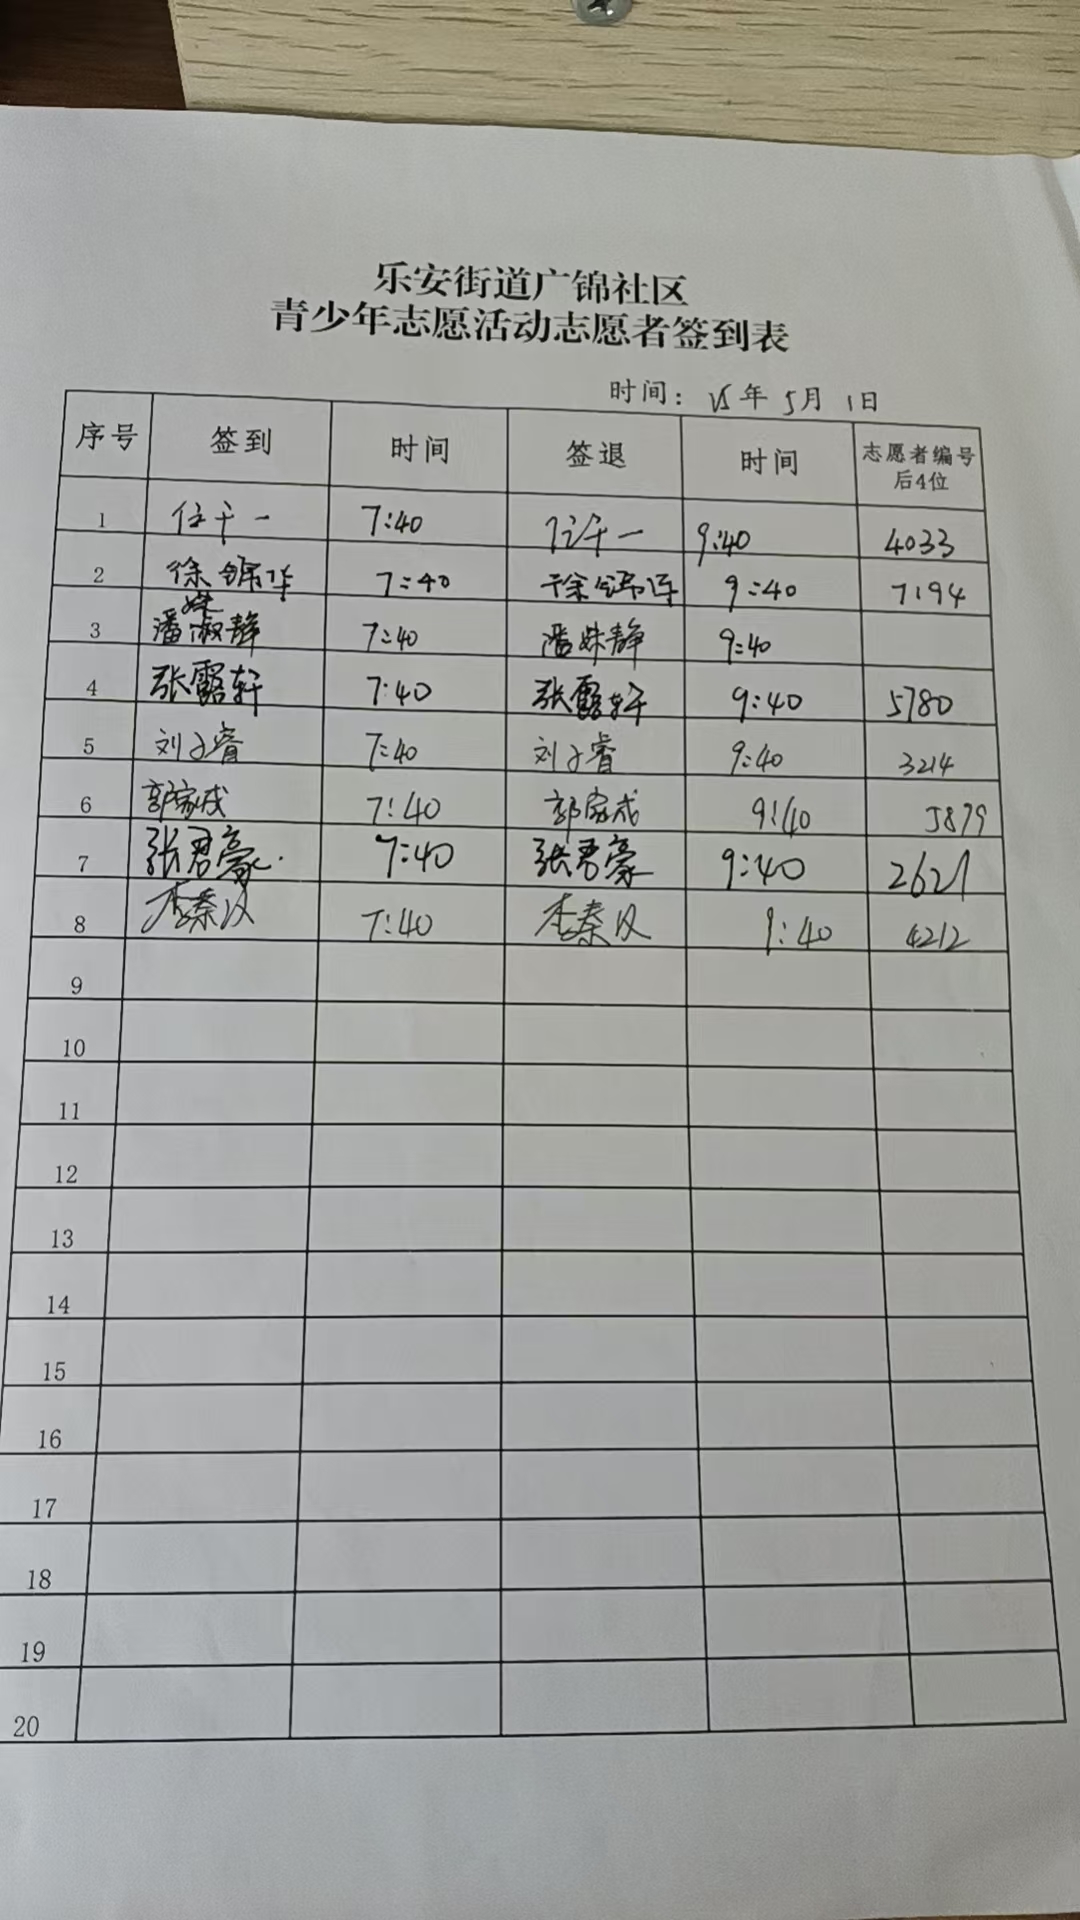 乐安街道广锦社区
青少年志愿活动志愿者签到表
时间: 年 5月 1日
序号 签到 时间 签退 时间 志愿者编号后4位
1 任千一 7:40 任千一 9:40 4033
2 徐锦华 7:40 徐锦华 9:40 7194
3 潘姝静 7:40 潘姝静 9:40
4 张露轩 7:40 张露轩 9:40 5780
5 刘子睿 7:40 刘子睿 9:40 3214
6 郭家成 7:40 郭家成 9:40 5879
7 张君豪 7:40 张君豪 9:40 2621
8 李秦汉 7:40 李秦汉 9:40 4212
9
10
11
12
13
14
15
16
17
18
19
20